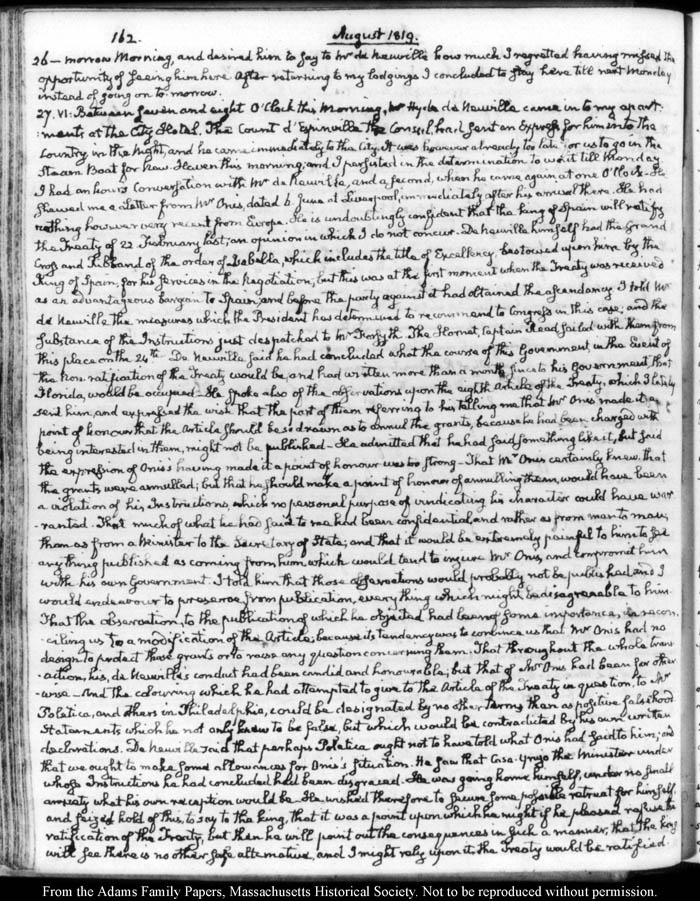 162. August 1819.
26 — morrow Morning, and desired him to say to Mr de Neuville how much I regretted having missed the
opportunity of seeing him here. After returning to my lodgings I concluded to stay here till next Monday
instead of going on to morrow.
27. VI: Between seven and eight O'Clock this Morning, Mr Hyde de Neuville came in to my apart-
:ments at the City Hotel. The Count d'Espinville the Consul, had sent an Express for him into the
Country in the Night, and he came immediately to the City. It was however already too late for us to go in the
Steam Boat for New-Haven this morning, and I persisted in the determination to wait till Monday
I had an hour's Conversation with Mr de Neuville, and a second, when he came again at one O'Clock. He
shewed me a Letter from Mr Onis, dated 6. June at Liverpool, immediately after his arrival there. He had
nothing however very recent from Europe. He is undoubtingly confident that the king of Spain will ratify
the Treaty of 22. February last; an opinion in which I do not concur. De Neuville himself had the Grand
Cross and Ribband of the order of Isabella, which includes the title of Excellency, bestowed upon him by the
King of Spain, for his services in the Negotiation; but this was at the first moment when the Treaty was received
as an advantageous bargain to Spain, and before the party against it had obtained the ascendancy. I told Mr
de Neuville the measures which the President has determined to recommend to Congress in this case; and the
substance of the Instructions just despatched to Mr Forsyth. The Hornet, Captain Read sailed with them from
this place on the 24th. De Neuville said he had concluded what the course of this Government, in the Event of
the Non-ratification of the Treaty would be, and had written more than a month since to his Government that
Florida, would be occupied. He spoke also of the observations upon the eighth Article of the Treaty, which I lately
sent him, and expressed the wish that the part of them referring to his telling me that Mr Onis made it a
point of honour that the Article should be so drawn as to annul the grants, because he had been charged with
being interested in them, might not be published — He admitted that he had said something like it, but said
the expression of Onis's having made it a point of honour was too strong — That Mr Onis certainly knew that
the grants were annulled; but that he should make a point of honor of annulling them, would have been
a violation of his Instructions, which no personal purpose of vindicating his character could have war-
-ranted. That much of what he had said to me had been confidential, and rather as from man to man,
than as from a Minister to the Secretary of State; and that it would be extremely painful to him to see
any thing published as coming from him, which would tend to injure Mr Onis, and compromit him
with his own Government. I told him that those observations would probably not be published, and I
would endeavour to preserve from publication, every thing which might be disagreeable to him.
That the observation, to the publication of which he objected had been of some importance, in recon-
-ciling us to a modification of the Article; because its tendency was to convince us that Mr Onis had no
design to protect those grants or to raise any question concerning them. That throughout the whole trans
-action, his, de Neuville's conduct had been candid and honourable; but that of Mr Onis had been far other
-wise — And the colouring which he had attempted to give to the Article of the Treaty in question, to Mr
Poletica, and others in Philadelphia, could be designated by no other terms than as positive falsehood
Statements which he not only knew to be false, but which would be contradicted by his own written
declarations. De Neuville said that perhaps Poletica ought not to have told what Onis had said to him; and
that we ought to make some allowances for Onis's situation. He saw that Casa-Yrujo the Minister under
whose Instructions he had concluded had been disgraced. He was going home himself, under no small
anxiety what his own reception would be. He wished therefore to secure some possible retreat for himself,
and seized hold of this, to say to the king, that it was a point upon which he might if he pleased refuse the
ratification of the Treaty, but then he will point out the consequences in such a manner, that the king
will see there is no other safe alternative, and I might rely upon it, the Treaty would be ratified.
From the Adams Family Papers, Massachusetts Historical Society. Not to be reproduced without permission.